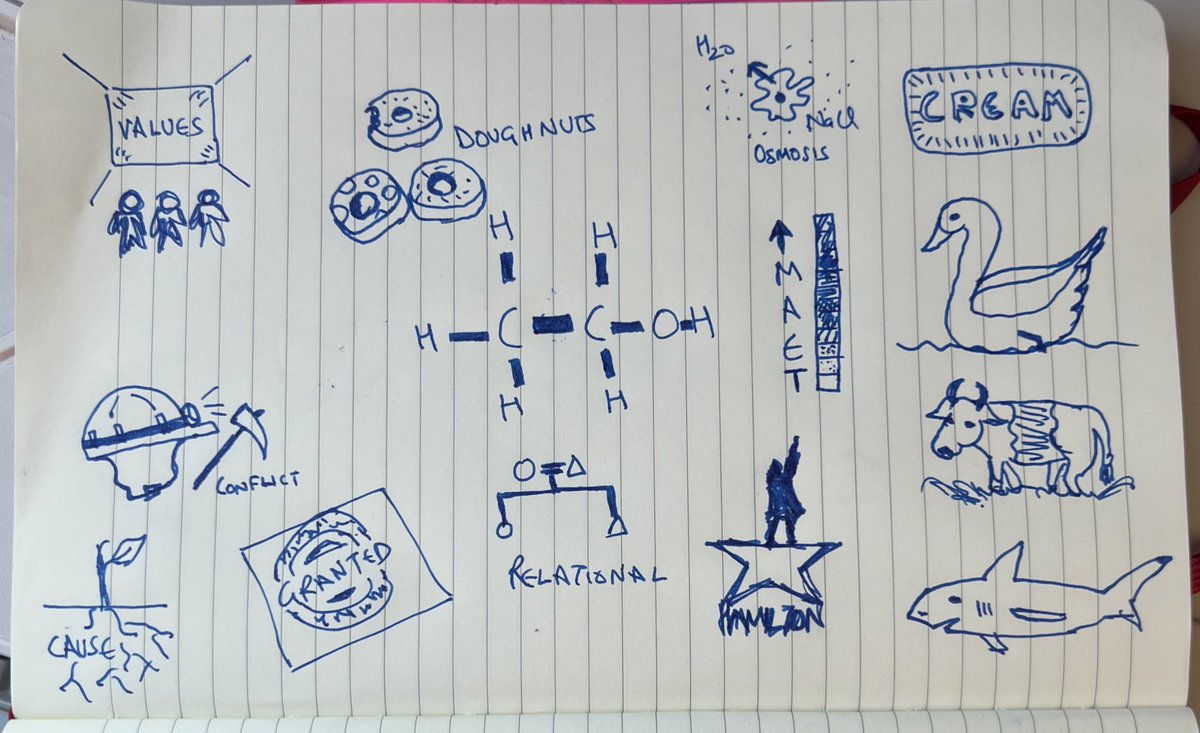 VALUES
DOUGHNUTS
H2O
NaCl
OSMOSIS
CREAM
H H
H C C O H
H H
M
A
E
T
CONFLICT
CAUSE
GRANTED
RELATIONAL
HAMILTON